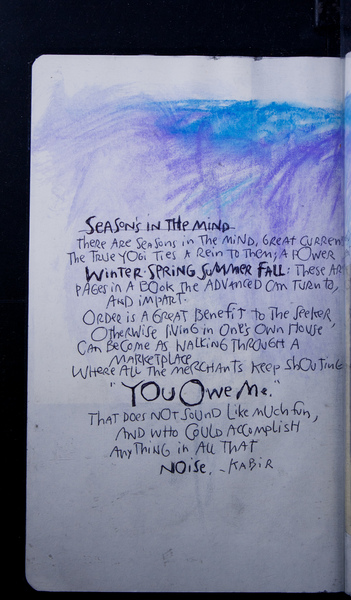 SEASON'S IN THE MIND
THERE ARE SEASONS IN THE MIND, GREAT CURREN
THE TRUE YOGI TIES A REIN TO THEM; A POWER
WINTER-SPRING SUMMER FALL: THESE AR
PAGES IN A BOOK THE ADVANCED CAN TURN TO,
AND IMPART.
ORDER IS A GREAT BENEFIT TO THE SEEKER,
OTHERWISE LIVING IN ONE'S OWN HOUSE
CAN BECOME AS WALKING THROUGH A
MARKETPLACE
WHERE ALL THE MERCHANTS KEEP SHOUTING
"YOU OWE ME."
THAT DOES NOT SOUND LIKE MUCH FUN,
AND WHO COULD ACCOMPLISH
ANYTHING IN ALL THAT
NOISE. -KABIR